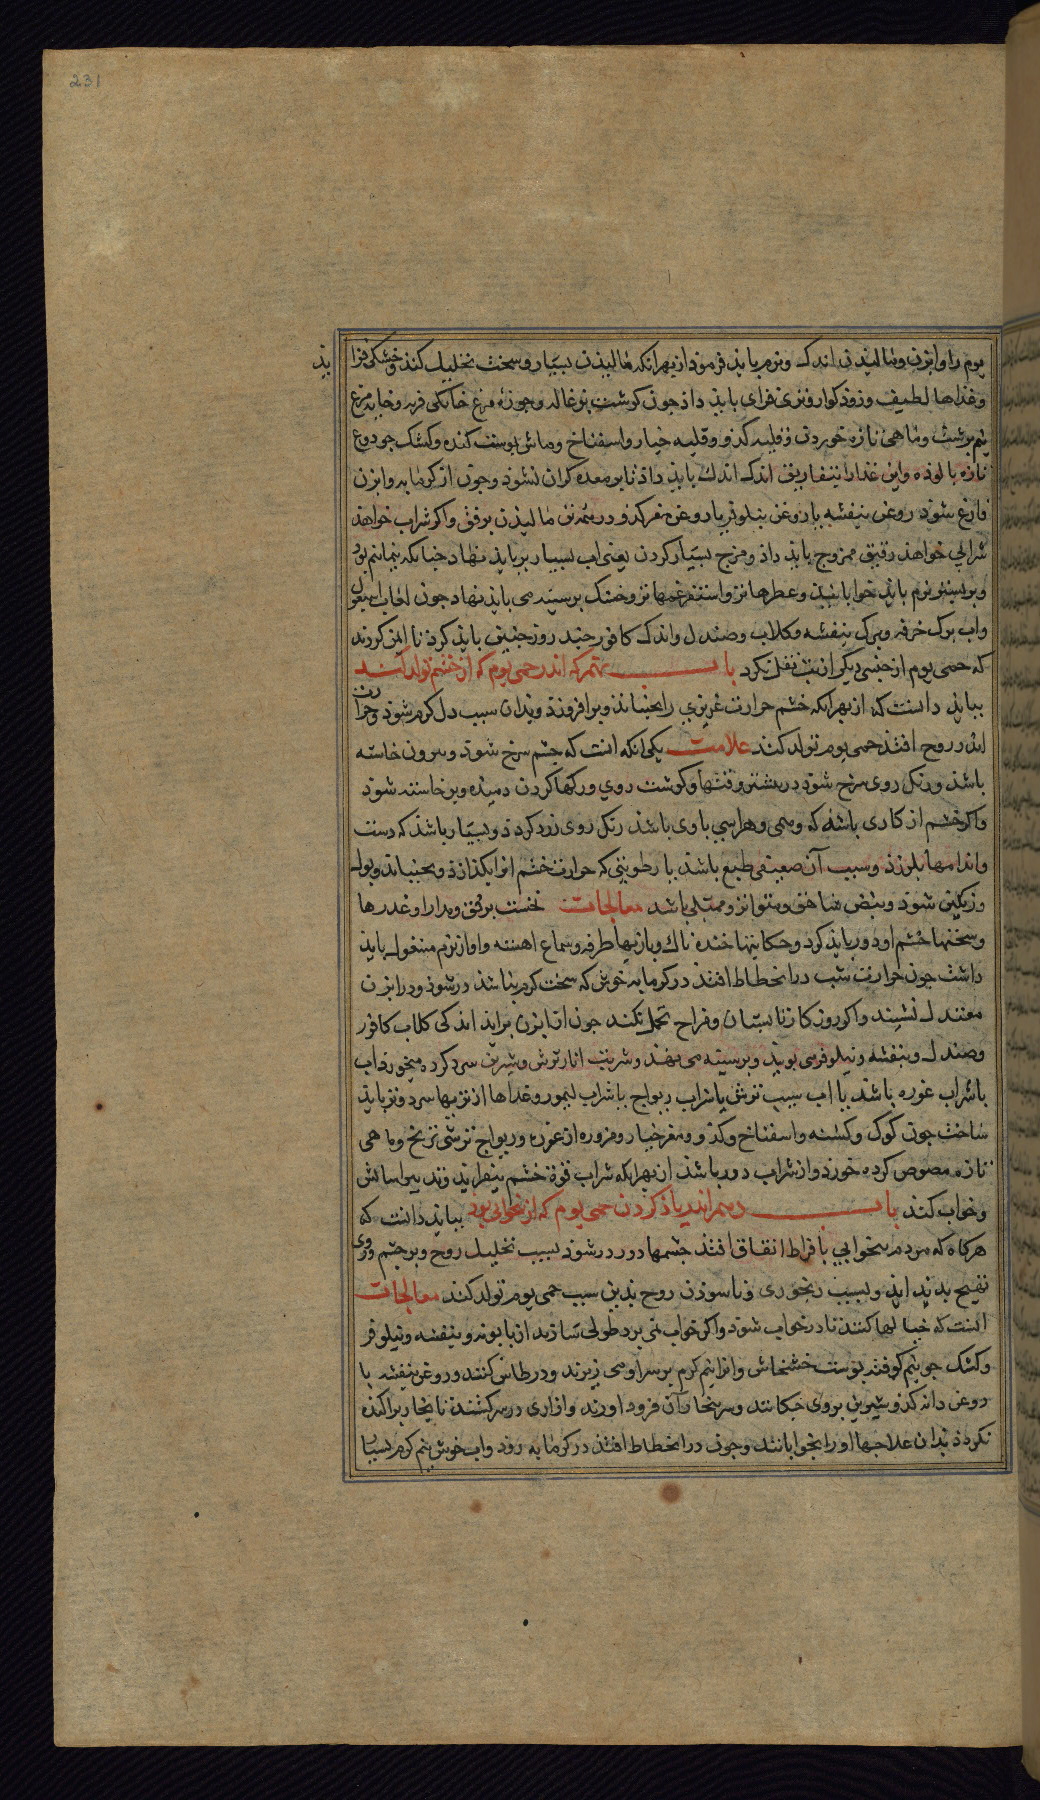 231
یوم را و ابزن و مالیذن اندک و نرم بایذ فرموذ از بهر انکه مالیذن بسیار و سخت تحلیل کند و خشکی فزا
یذ
و غذاها لطیف و زوذ کوار و تری فزای بایذ داذ چون کوشت بزغاله و جوزه مرغ خانکی فربه و خایه مرغ
نیم برشت و ماهی تازه خوردن و قلیه کذو و قلیه خیار و اسفناخ و ماش بوست کنده و کشک جو دوغ
تازه بالوذه و این غذا را بتفاریق اندک اندک بایذ داذ تا بر معده کران نشوذ و چون از کرمابه و ابزن
فارغ شوذ روغن بنفشه یا روغن نیلوفر یا روغن مغز کذو در تنش مالیذن برفق و اکر شراب خواهذ
شرابی خواهذ رقیق ممزوج بایذ داذ و مزج بسیار کردن یعنی اب بسیار بر بایذ نهاد چنانکه نیمانیم بوذ
و بر بستر نرم بایذ خوابانیذ و عطرها تر و اسفرغمها تر و خنک بر سینه می بایذ نهاد چون لعاب اسبغول
و اب برک خرفه و برک بنفشه و کلاب و صندل و اندک کافور چند روز چنین بایذ کرد تا ایمن کردند
که حمی یوم از جنسی دیکر از تب نقل نکرد باب نهم که اندر حمی یوم که از خشم تولد کند
ببایذ دانست که از بهر انکه خشم حرارت غریزی را بجنباند و بر افروزذ و بدان سبب دل کرم شوذ و حرارت
اندر روح افتذ حمی یوم تولد کند علامت یکی انکه انست که چشم سرخ شوذ و بیرون خاسته
باشذ و رنک روی سرخ شوذ در بیشتر وقتها و کوشت روی و رکها کردن دمیذه و برخاسته شوذ
و اکر خشم از کاری باشذ که وهمی و هراسی با وی باشذ رنک روی زرد کردذ و بسیار باشذ که دست
و اندامها بلرزذ و سبب آن ضعیفی طبع باشذ با رطوبتی که حرارت خشم انرا بکذازذ و بجنباند و بول
رنکین شوذ و نبض شاهق و متواتر و ممتلی باشد معالجات نخست برفق و مدارا و عذرها
و سخنها خشم او دور بایذ کرد و حکایتها خنده ناک و بازیها طرفه و سماع اهسته و اواز نرم مشغول بایذ
داشت چون حرارت تب در انحطاط افتذ در کرمابه خوش که سخت کرم نباشذ در شوذ و در ابزن
معتدل نشیند و اکر روزکار تابستان و مزاج تحمل کند چون از ابزن براید اندکی کلاب کافور
و صندل و بنفشه و نیلوفر می بویذ و بر سینه می نهند و شربت انار ترش و شیرین سرد کرده میخورذ اب
با شراب غوره باشذ یا اب سیب ترش یا شراب ریواج یا شراب لیمو و غذاها از تریها سرد و تر بایذ
ساخت چون کوک و کشنه و اسفناخ و کذو و مغز خیار و مزوره از غوره و ریواج ترشی ترنج و ماهی
تازه مصوص کرده خورذ و از شراب دور باشذ از بهر انکه شراب قوة خشم بیفزایذ و تدبیر اسایش
و خواب کنند باب دهم اندر یاذ کردن حمی یوم که از بیخوابی بوذ ببایذ دانست که
هرکاه که مردم بیخوابی بافراط اتفاق افتذ چشمها دور در شوذ بسبب تحلیل روح و بر چشم و روی
تهیج بدید اید و بسبب رنجوری و نا سوذن روح بذین سبب حمی یوم تولد کند معالجات
انست که حیلها کنند تا در خواب شوذ و اکر خواب نمی برد طولی سازند از بابونه و بنفشه و نیلوفر
و کشک جو نیم کوفته بوست خشخاش و انرا نیم کرم بر سر او می ریزند و در طاس کنند و روغن بنفشه یا
روغن دانه کذو شیرین بر وی چکانند و سر بخار آن فرود اورند و ازاری در سر کشند تا بخار براکنده
نکردذ بدان علاجها او را بخوابانند و چون در انحطاط افتذ در کرمابه روذ و اب خوش نیم کرم بسیار